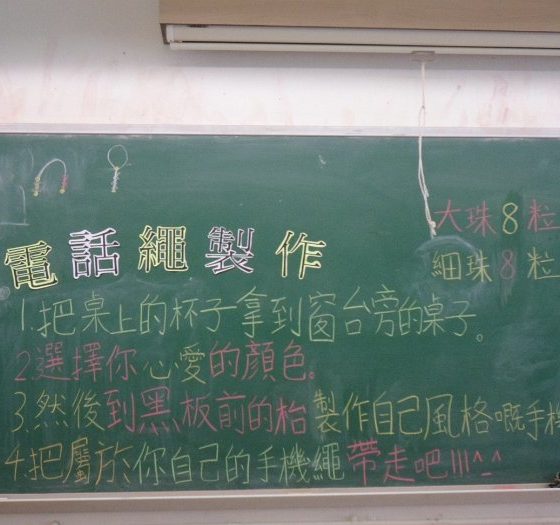 大珠8粒
細珠8粒
電話繩製作
1.把桌上的杯子拿到窗台旁的桌子。
2.選擇你心愛的顏色。
3.然後到黑板前的枱製作自己風格嘅手機
4.把屬於你自己的手機繩帶走吧!!!^_^